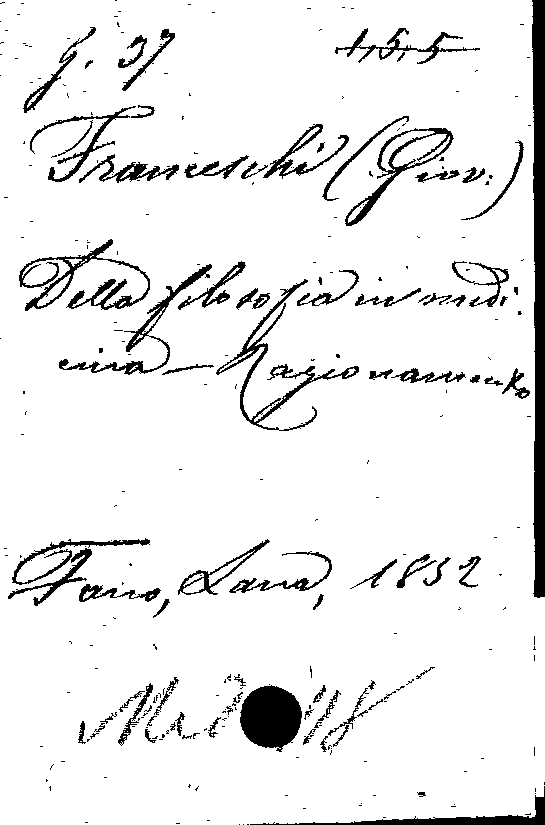 g. 37 1,5,5
Franceschi (Giov.)
Della filosofia in medi
cina – Ragionamento
Fano, Lana, 1832